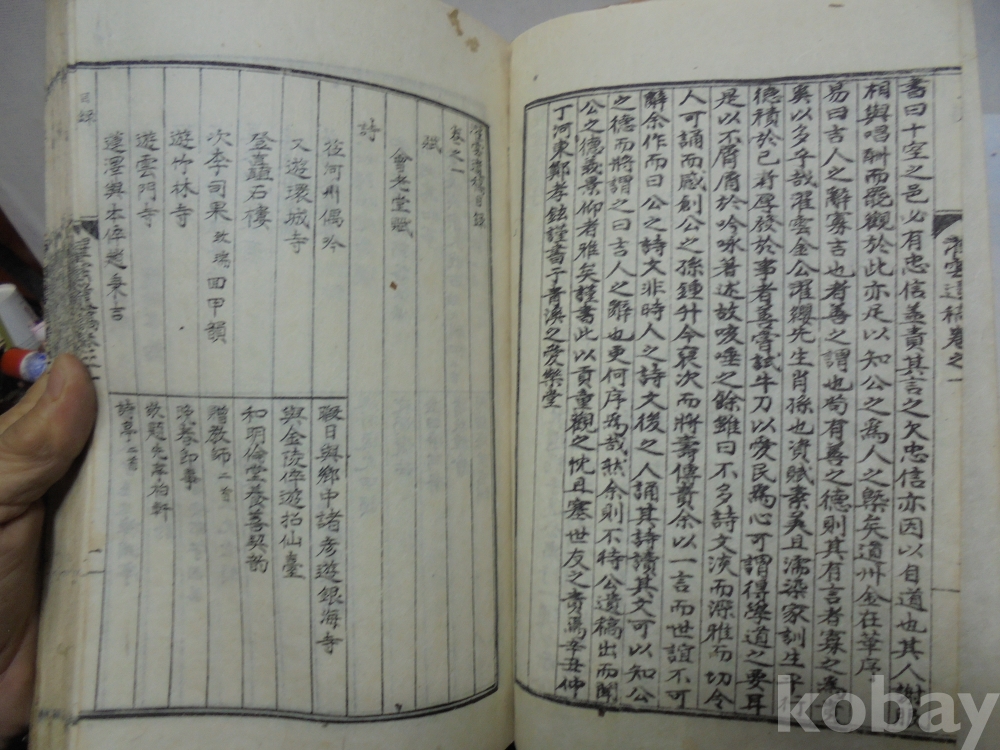 書曰十室之邑必有忠信盖責其言之欠忠信亦因以自道也其人謝
相與唱酬而罷觀於此亦足以知公之爲人之槩矣道州金在華序
易曰吉人之辭寡言也者善之謂也苟有善之德則其有言者寡之爲
奚以多乎哉濯雲金公濯纓先生肖孫也資賦素美且濡染家訓生平行
德積於己者厚發於事者善嘗試牛刀以愛民爲心可謂得學道之要耳
是以不屑屑於吟咏著述故咳唾之餘雖曰不多詩文淡而深雅而切令
人可誦而感創公之孫鍾升今裒次而將壽傳責余以一言而世誼不可
辭余作而曰公之詩文非時人之詩文後之人誦其詩讀其文可以知公
之德而將謂之曰吉人之辭也更何序爲哉然余則不待公遺稿出而聞
公之德義景仰者雅矣謹書此以貢重觀之忱且塞世友之責焉辛丑仲
丁河東鄭孝鉉謹書于靑溪之愛樂堂
濯雲遺稿卷之一
濯雲遺稿目錄
卷之一
賦
會老堂賦
詩
在河州偶吟
暇日與鄕中諸彦遊銀海寺
又遊環城寺
與金陵倅遊招仙臺
登矗石樓
和明倫堂養善契韵
次李司果致瑞回甲韻
贈敎師二首
遊竹林寺
遊雲門寺
敬題先亭柏軒
蓮溪與本倅趙秉吉
詩亭二首
目錄